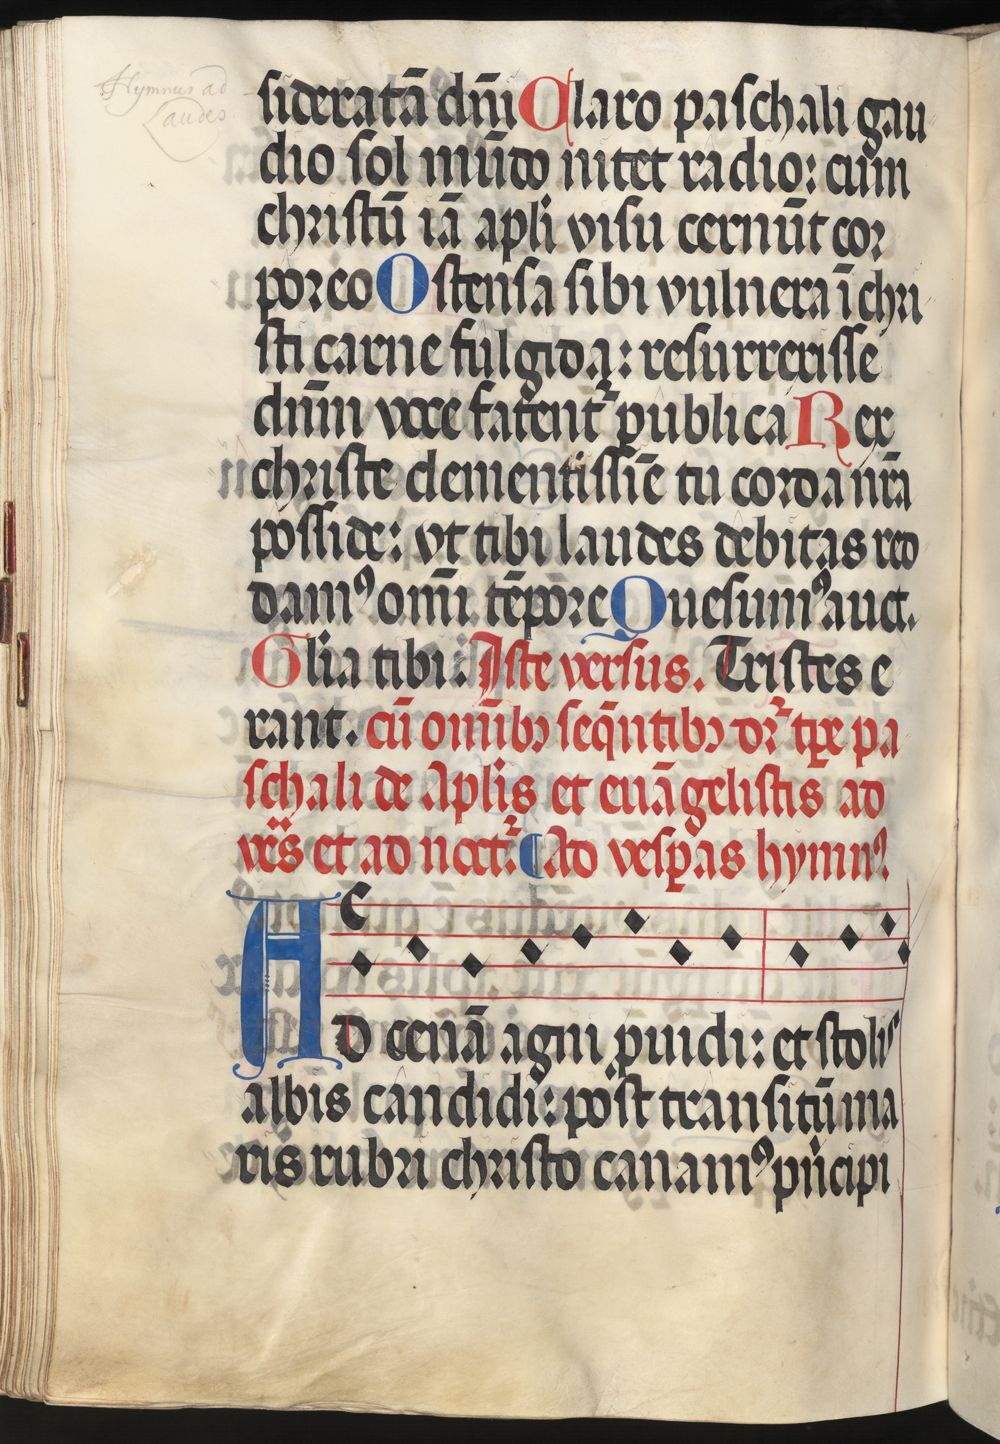 Hymnus ad
Laudes
sideratā dn̄i Claro paschali gau
dio sol mūdo nitet radio: cum
christū iā apli visu cernūt cor
poreo Ostensa sibi vulnera ī chri
sti carne fulgida: resurrexisse
dn̄m voce fatent᷑ publica Rex
christe clementissīe tu corda nr̄a
posside: vt tibi laudes debitas red
damꝰ om̄i tēpore Quesumꝰ auct.
Glia tibi. Iste versus. Tristes e
rant. cū om̄ibꝫ seqn̄tibꝫ dr᷑ tꝑe pa
schali de aplis et euāgelistis ad
vrs̄ et ad noct᷑. ¶ Ad vesꝑas hymnꝰ
AD cenā agni ꝓuidi: et stolis
albis candidi: post transitū ma
ris rubri christo canamꝰ pͥncipi